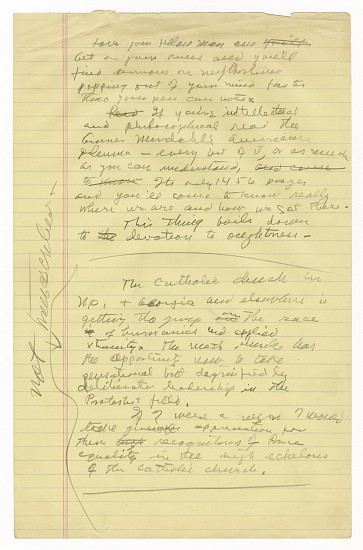 Love your fellow man and you'll
Get on your knees and you'll
find sermons on neighborliness
popping out of your mind faster
than you can
If you're intellectual
and philosophical read the
Gunnar Myrdahl's American
Dilemma - every bit of it, or as much
as you can understand, and course
to know Its only 1456 pages
and you'll come to know really
where we are and how we got there.
This thing boils down
to the devotion to oughtness-
The Catholic church in
N.O. + Georgia and elsewhere is
getting the jump on the race
of humanics and applied
xtianity. The meth church has
the opportunity now to take
sensational but dignified by
deliberate leadership in the
Protestant field.
If I were a negro I would
take appreciation for
their recognition of
equality in the high echelons
of the catholic church.
not